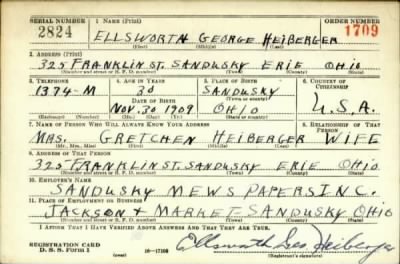 SERIAL NUMBER 1. Name (Print) ORDER NUMBER
2824 ELLSWORTH GEORGE HEIBERGER 1709
(First) (Middle) (Last)
2. Address (Print)
325 FRANKLIN ST. SANDUSKY ERIE OHIO
(Number and street or R. F. D. number) (Town) (County) (State)
3. Telephone 4. Age in Years 5. Place of Birth 6. Country of Citizenship
1374-M 30 SANDUSKY
Date of Birth (Town or county)
NOV. 30 1909 OHIO U.S.A.
(Exchange) (Number) (Mo.) (Day) (Yr.) (State or country)
7. Name of Person Who Will Always Know Your Address 8. Relationship of That Person
MRS. GRETCHEN HEIBERGER WIFE
(Mr., Mrs., Miss) (First) (Middle) (Last)
9. Address of That Person
325 FRANKLIN ST. SANDUSKY ERIE OHIO
(Number and street or R. F. D. number) (Town) (County) (State)
10. Employer's Name
SANDUSKY NEWSPAPERS INC.
11. Place of Employment or Business
JACKSON & MARKET SANDUSKY OHIO
(Number and street or R. F. D. number) (Town) (County) (State)
I Affirm That I Have Verified Above Answers and That They Are True.
REGISTRATION CARD
D. S. S. Form 1 16-17105 Ellsworth Geo Heiberger
(Registrant's signature)